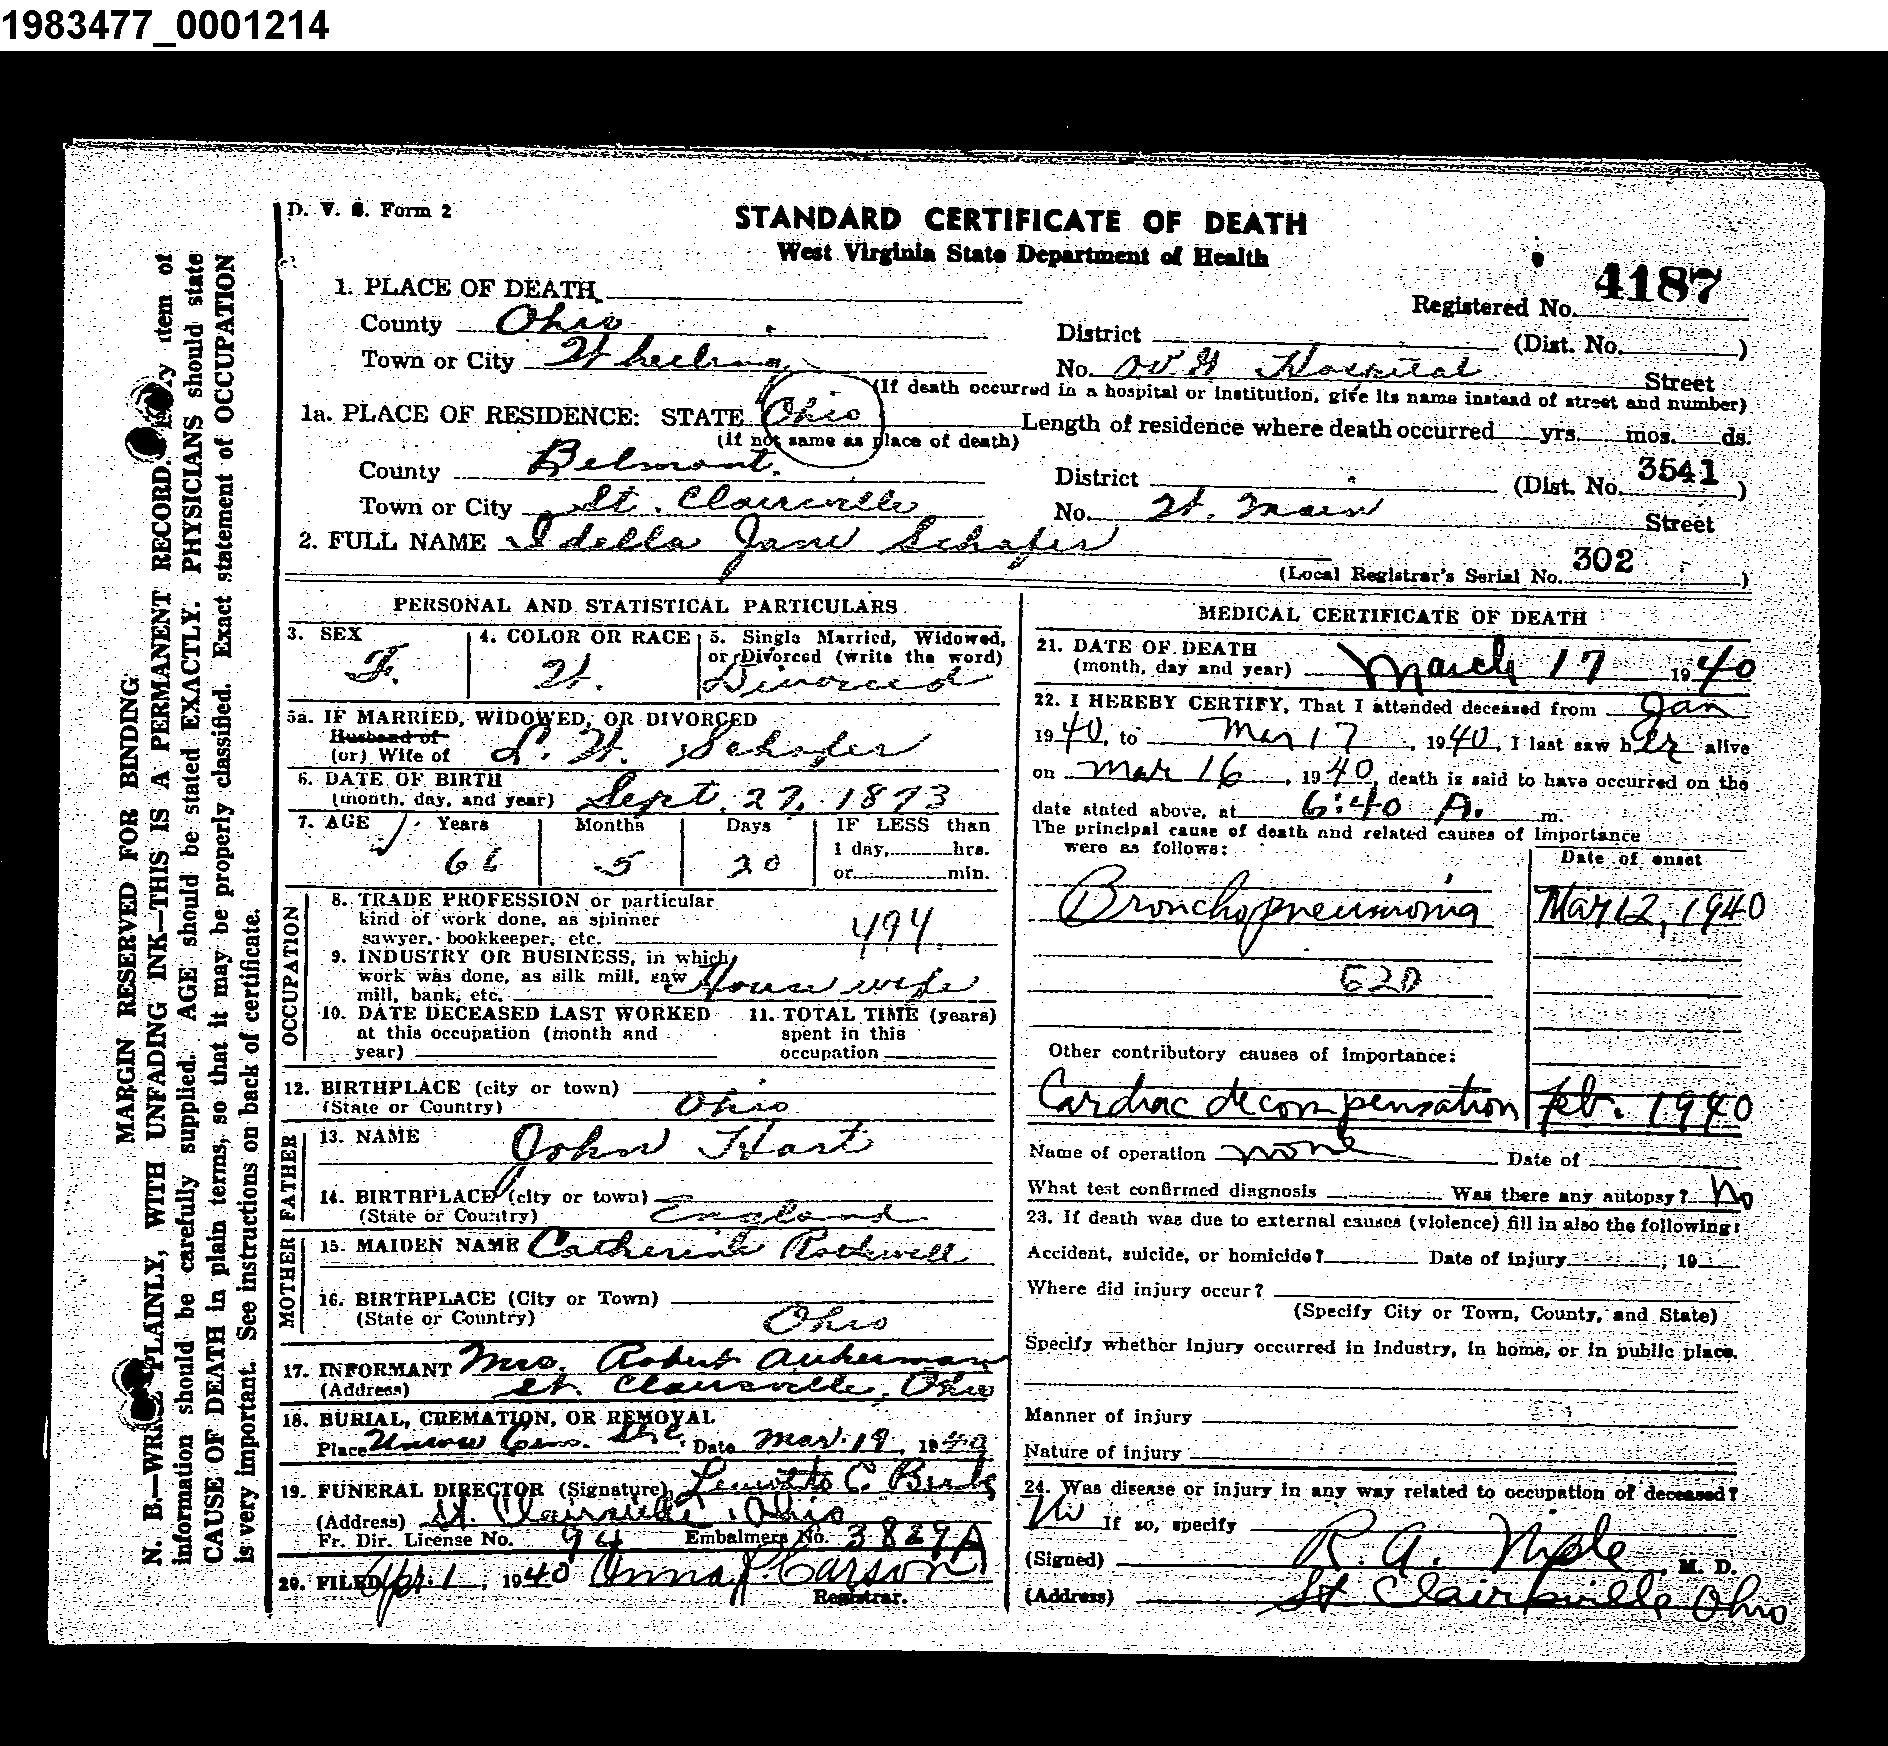 1983477_0001214
D. V. S. Form 2
STANDARD CERTIFICATE OF DEATH
West Virginia State Department of Health
4187
1. PLACE OF DEATH
Registered No.
County Ohio
District (Dist. No. )
Town or City Wheeling
No. O V G Hospital Street
(If death occurred in a hospital or institution, give its name instead of street and number)
1a. PLACE OF RESIDENCE: STATE Ohio
(if not same as place of death)
Length of residence where death occurred yrs. mos. ds.
County Belmont.
District (Dist. No. 3541 )
Town or City St. Clairsville
No. W. Main Street
2. FULL NAME Idella Jane Schafer
(Local Registrar's Serial No. 302 )
PERSONAL AND STATISTICAL PARTICULARS
3. SEX
F.
4. COLOR OR RACE
W.
5. Single Married, Widowed,
or Divorced (write the word)
Divorced
5a. IF MARRIED, WIDOWED, OR DIVORCED
Husband of
(or) Wife of L. W. Schafer
6. DATE OF BIRTH
(month, day, and year) Sept. 27, 1873
7. AGE Years Months Days IF LESS than
66 5 20
1 day, hrs.
or min.
OCCUPATION
8. TRADE PROFESSION or particular
kind of work done, as spinner
sawyer, bookkeeper, etc. 494.
9. INDUSTRY OR BUSINESS, in which
work was done, as silk mill, saw
mill, bank, etc. House wife
10. DATE DECEASED LAST WORKED
at this occupation (month and
year)
11. TOTAL TIME (years)
spent in this
occupation
12. BIRTHPLACE (city or town)
(State or Country) Ohio
FATHER
13. NAME John Hart
14. BIRTHPLACE (city or town)
(State or Country) England
MOTHER
15. MAIDEN NAME Catherine Rothwell
16. BIRTHPLACE (City or Town)
(State or Country) Ohio
17. INFORMANT Mrs. Robert Aukerman
(Address) St. Clairsville, Ohio
18. BURIAL, CREMATION, OR REMOVAL
Place Union Cem. St.C. Date Mar. 19, 1940
19. FUNERAL DIRECTOR (Signature) C.
(Address) St. Clairsville, Ohio
Fr. Dir. License No. 94 Embalmers No. 3829A
20. FILED Apr. 1, 1940 Anna P. Carson
Registrar.
MEDICAL CERTIFICATE OF DEATH
21. DATE OF DEATH
(month, day and year) March 17 1940
22. I HEREBY CERTIFY, That I attended deceased from Jan
1940, to Mar 17, 1940, I last saw her alive
on Mar 16, 1940, death is said to have occurred on the
date stated above, at 6:40 A. m.
The principal cause of death and related causes of importance
were as follows:
Date of onset
Bronchopneumonia Mar 12, 1940
620
Other contributory causes of importance:
Cardiac decompensation Feb. 1940
Name of operation none Date of
What test confirmed diagnosis Was there any autopsy? No
23. If death was due to external causes (violence) fill in also the following:
Accident, suicide, or homicide? Date of injury , 19
Where did injury occur?
(Specify City or Town, County, and State)
Specify whether injury occurred in industry, in home, or in public place.
Manner of injury
Nature of injury
24. Was disease or injury in any way related to occupation of deceased?
No If so, specify
(Signed) R. A. M. D.
(Address) St Clairsville Ohio
MARGIN RESERVED FOR BINDING
N. B.—WRITE PLAINLY, WITH UNFADING INK—THIS IS A PERMANENT RECORD. Every item of
information should be carefully supplied. AGE should be stated EXACTLY. PHYSICIANS should state
CAUSE OF DEATH in plain terms, so that it may be properly classified. Exact statement of OCCUPATION
is very important. See instructions on back of certificate.